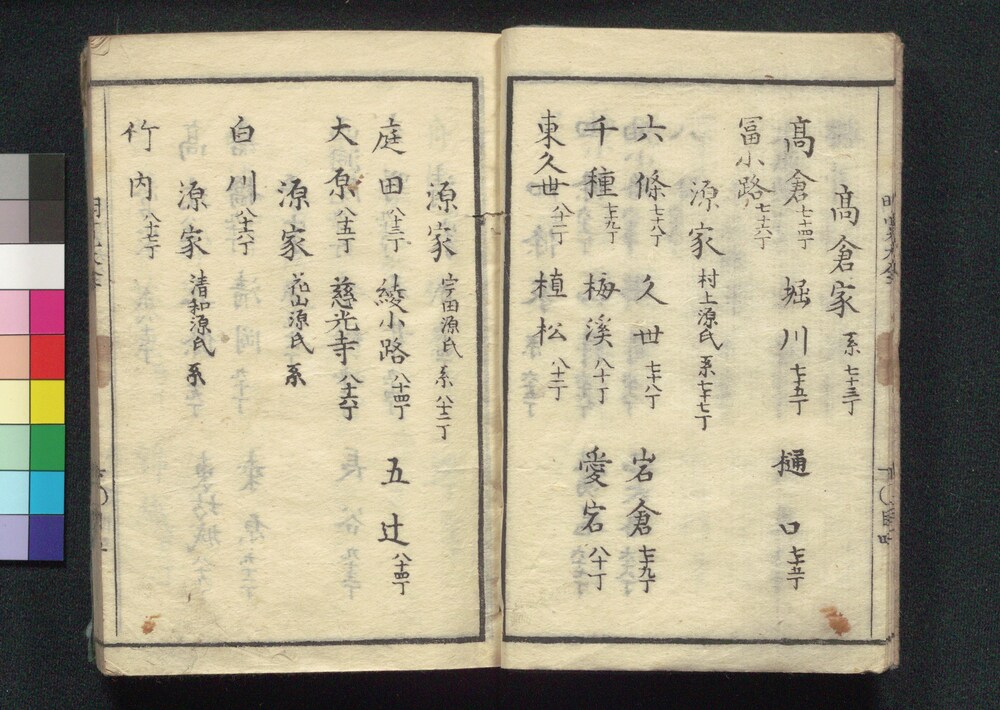 髙倉家 系七十三丁
髙倉七十四丁 堀川七十五丁 樋口七十五丁
冨小路七十六丁
源家 村上源氏 系七十七丁
六條七十八丁 久世七十八丁 岩倉七十九丁
千種七十九丁 梅溪八十丁 愛宕八十丁
東久世八十一丁 植松八十二丁
源家 宇田源氏 系八十二丁
庭田八十三丁 綾小路八十四丁 五辻八十四丁
大原八十五丁 慈光寺八十六丁
源家 花山源氏 系
白川八十六丁
源家 清和源氏 系
竹内八十七丁